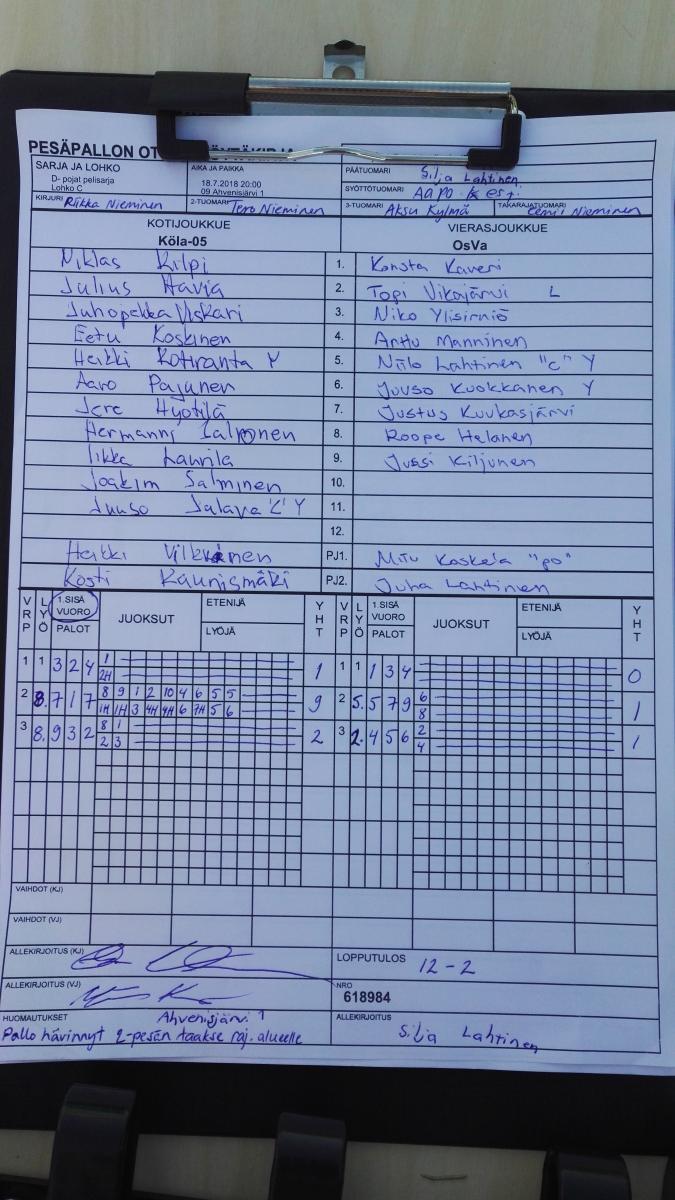 PESÄPALLON
SARJA JA LOHKO
D- pojat pelisarja
Lohko C
AIKA JA PAIKKA
18.7.2018 20:00
09 Ahvenisjärvi 1
PÄÄTUOMARI Silja Lahtinen
SYÖTTÖTUOMARI Aapo
KIRJURI Riikka Nieminen 2-TUOMARI Tero Nieminen 3-TUOMARI Aksu Kylmä TAKARAJATUOMARI Eemi Nieminen
KOTIJOUKKUE VIERASJOUKKUE
Köla-05 OsVa
Niklas Kilpi 1. Konsta Kaveri
Julius Havia 2. Topi Vikajärvi L
Juhopekka Uskari 3. Niko Ylisirniö
Eetu Koskinen 4. Arttu Manninen
Heikki Kotiranta Y 5. Niilo Lahtinen "c" Y
Aaro Pajunen 6. Juuso Kuokkanen Y
Jere Hyötilä 7. Justus Kuukasjärvi
Hermanni Salmonen 8. Roope Helanen
Iikka Laurila 9. Jussi Kiljunen
Joakim Salminen 10.
Juuso Jalava "C" Y 11.
12.
Heikki PJ1. "po"
Kosti Kaunismäki PJ2. Juha Lahtinen
VRP LYÖ 1.SISÄ VUORO PALOT JUOKSUT ETENIJÄ LYÖJÄ YHT VRP LYÖ 1.SISÄ VUORO PALOT JUOKSUT ETENIJÄ LYÖJÄ YHT
1 1 3 2 4 1 1 1 1 1 3 4 0
2H
2 8. 7 1 7 8 9 1 2 10 4 6 5 5 9 2 5. 5 7 9 6 1
1H 1H 3 4H 4H 6 7H 5 6 8
3 8. 9 3 2 8 1 2 3 2. 4 5 6 2 1
2 3 4
VAIHDOT (KJ)
VAIHDOT (VJ)
ALLEKIRJOITUS (KJ)
LOPPUTULOS 12-2
ALLEKIRJOITUS (VJ)
NRO
618984
HUOMAUTUKSET Ahvenisjärvi 1
Pallo hävinnyt 2-pesän taakse raj. alueelle
ALLEKIRJOITUS
Silja Lahtinen